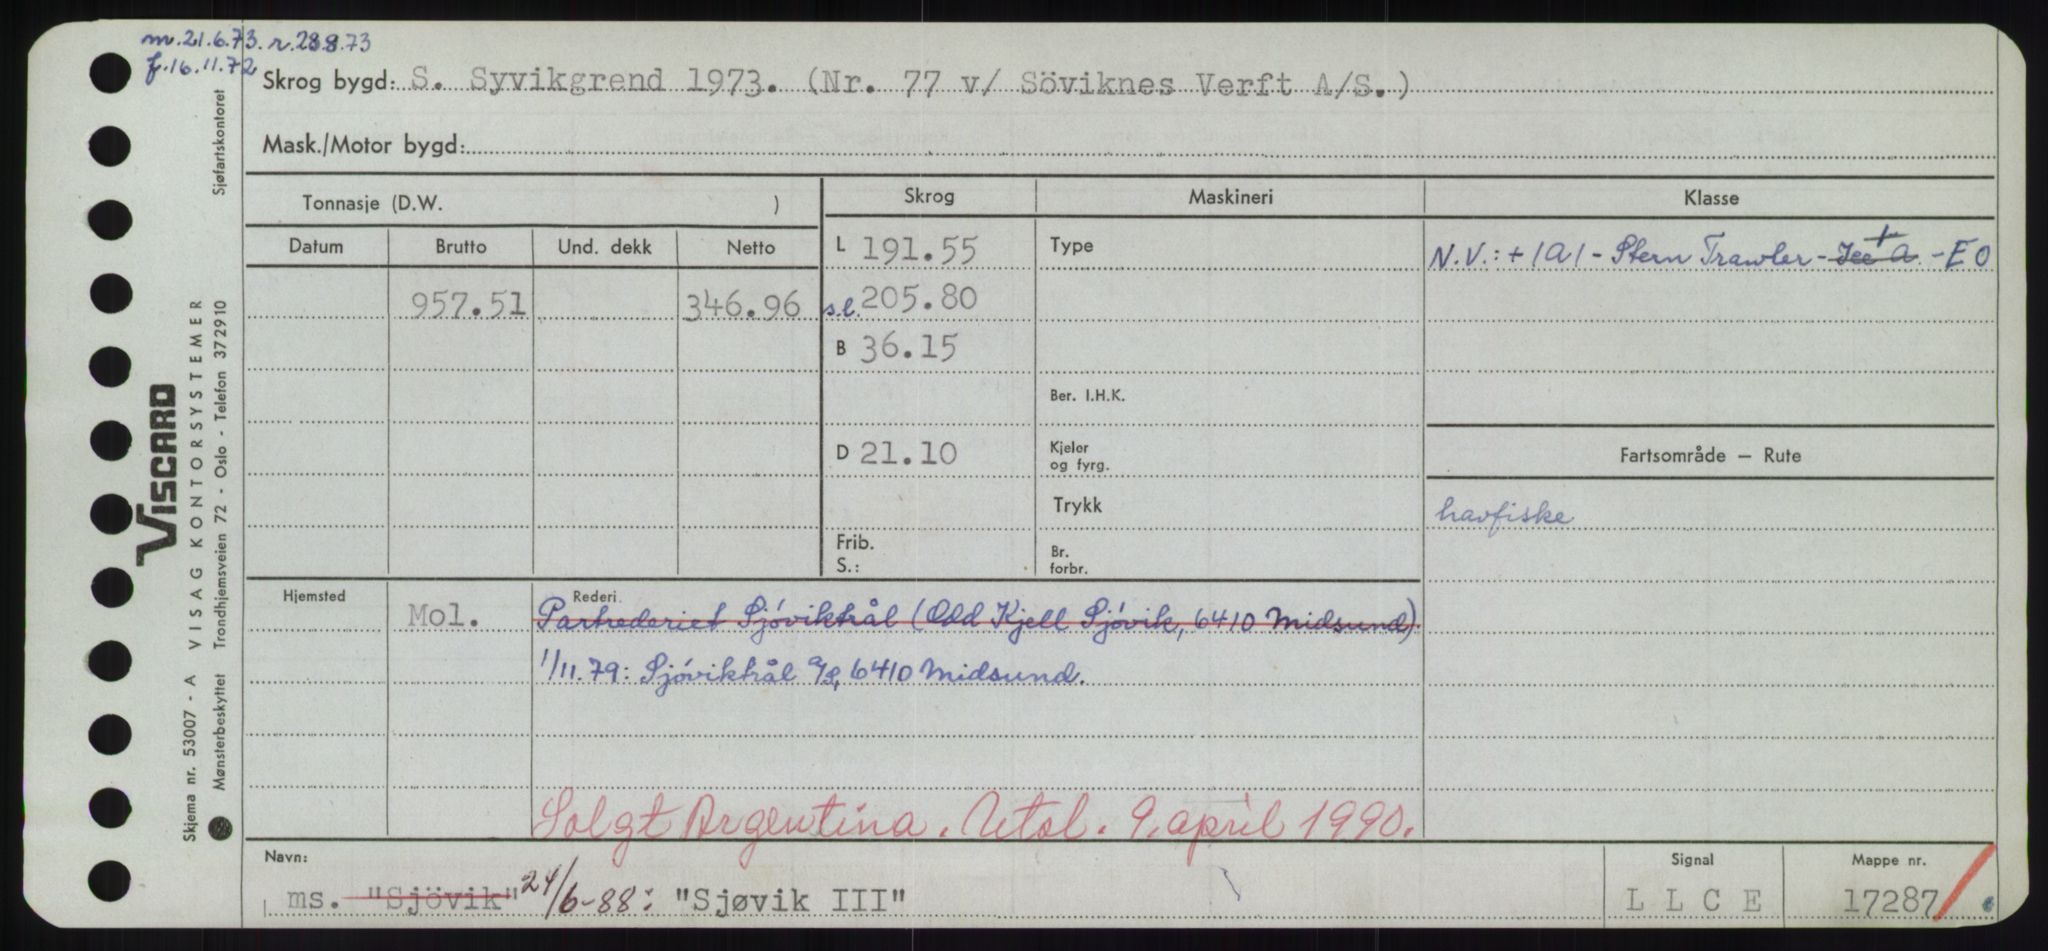 m.21.6.73. r.28.8.73
f.16.11.72
Skrog bygd: S. Syvikgrend 1973. (Nr. 77 v/ Söviknes Verft A/S.)
Mask./Motor bygd:
Tonnasje (D.W. )
Skrog
Maskineri
Klasse
Datum
Brutto
Und. dekk
Netto
L 191.55
Type
N.V.: +1A1 - Stern Trawler - Ice A - EO
957.51
346.96
s.l. 205.80
B 36.15
Ber. I.H.K.
D 21.10
Kjeler
og fyrg.
Fartsområde — Rute
Trykk
havfiske
Frib.
S.:
Br.
forbr.
Hjemsted
Mol.
Rederi.
Partrederiet Sjøviktrål (Odd Kjell Sjøvik, 6410 Midsund)
1/11.79: Sjøviktrål a/s, 6410 Midsund.
Solgt Argentina. Utsl. 9. april 1990.
Navn:
Signal
Mappe nr.
ms. "Sjövik" 24/6-88: "Sjøvik III"
LLCE
17287
Skjema nr. 53007 - A VISAG KONTORSYSTEMER
Mønsterbeskyttet Trondhjemsveien 72 - Oslo - Telefon 372910 Sjøfartskontoret
VISCARD